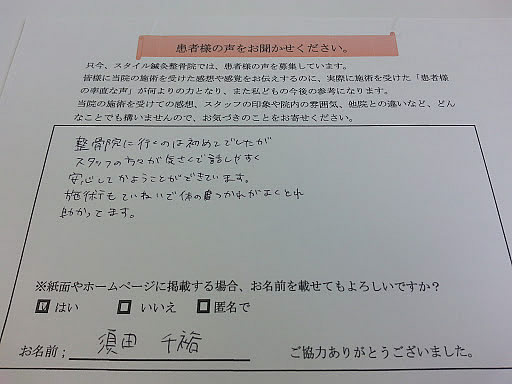 患者様の声をお聞かせください。
只今、スタイル鍼灸整骨院では、患者様の声を募集しています。
皆様に当院の施術を受けた感想や感覚をお伝えするのに、実際に施術を受けた「患者様
の率直な声」が何よりの力となり、また私どもの今後の参考になります。
当院の施術を受けての感想、スタッフの印象や院内の雰囲気、他院との違いなど、どん
なことでも構いませんので、お気づきのことをお寄せください。
整骨院に行くのは初めてでしたが
スタッフの方々が気さくで話しやすく
安心してかようことができています。
施術もていねいで体の疲つかれがよくとれ
助かってます。
※紙面やホームページに掲載する場合、お名前を載せてもよろしいですか？
はい いいえ 匿名で
お名前： 須田 千裕
ご協力ありがとうございました。